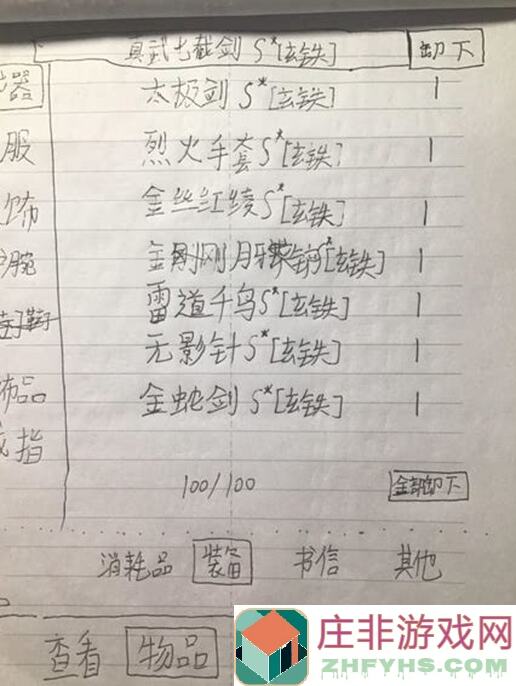 真武七截剑 S*[玄铁] 卸下
器 太极剑 S*[玄铁] 1
服 烈火手套S*[玄铁] 1
饰 金丝红绫S*[玄铁] 1
腕 金刚月牙 S*[玄铁] 1
鞋 雷道千鸟S*[玄铁] 1
无影针S*[玄铁] 1
饰品 金蛇剑 S*[玄铁] 1
戒指
100/100 全部卸下
消耗品 装备 书信 其他
查看 物品
庄非游戏网
ZHFYHS.COM